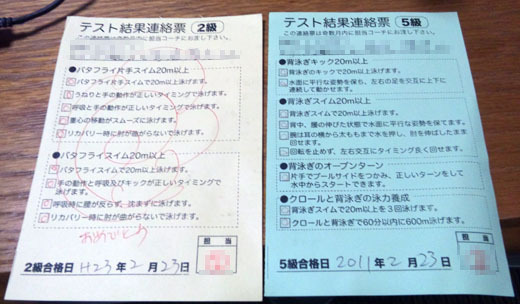 テスト結果連絡票 2級
この連絡票は奇数月内に担当コーチにお渡し下さい。
●バタフライ片手スイム20m以上
バタフライ片手スイムで20m以上泳げます。
うねりと手の動作が正しいタイミングで泳げます。
呼吸と手の動作が正しいタイミングで泳げます。
重心の移動がスムーズに泳げます。
リカバリー時に肘が曲がらないで泳げます。
●バタフライスイム20m以上
バタフライスイムで20m以上泳げます。
手の動作と呼吸及びキックが正しいタイミングで
泳げます。
呼吸時に腰が反らず、沈まずに泳げます。
リカバリー時に肘が曲がらないで泳げます。
おめでとう
担当
2級合格日 H23年2月23日
テスト結果連絡票 5級
この連絡票は奇数月内に担当コーチにお渡し下さい。
●背泳ぎのキック20m以上
背泳ぎのキックで20m以上泳げます。
水面に平行な姿勢を保ち、左右の足を交互に上下に
連続して動かせます。
●背泳ぎスイム20m以上
背泳ぎスイムで20m以上泳げます。
背中、腰の伸びた状態で水面に平行な姿勢で泳げます。
腕は耳の横から太ももまで水を押し、肘を伸ばしたまま
回せます。
回転を止めず、左右交互にタイミング良く回せます。
●背泳ぎのオープンターン
片手でプールサイドをつかみ、正しいターンをして
水中からスタートできます。
●クロールと背泳ぎの泳力養成
背泳ぎスイムで20m以上を3回泳げます。
クロールと背泳ぎで60分以内に600m泳げます。
担当
5級合格日 2011年2月23日